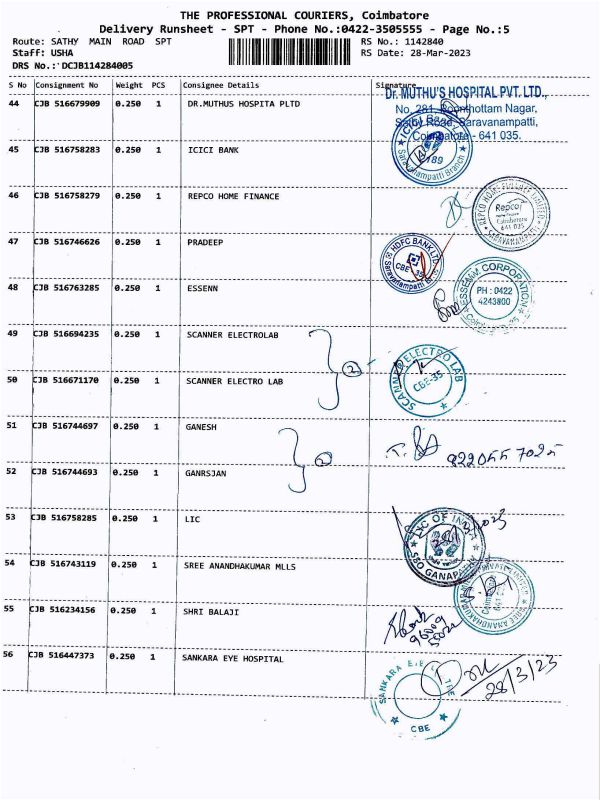 THE PROFESSIONAL COURIERS, Coimbatore
Delivery Runsheet - SPT - Phone No.:0422-3505555 - Page No.:5
Route: SATHY MAIN ROAD SPT RS No.: 1142840
Staff: USHA RS Date: 28-Mar-2023
DRS No.:'DCJB114284005
S No Consignment No Weight PCS Consignee Details Signature
Dr. MUTHU'S HOSPITAL PVT. LTD.,
44 CJB 516679909 0.250 1 DR.MUTHUS HOSPITA PLTD
No. 281, Nagar,
Road, Saravanampatti,
Coimbatore - 641 035.
45 CJB 516758283 0.250 1 ICICI BANK
ICICI
Saravanampatti Branch
189
46 CJB 516758279 0.250 1 REPCO HOME FINANCE
REPCO HOME FINANCE LIMITED
Repco
Coimbatore
641 035
SARAVANAMPATTI
47 CJB 516746626 0.250 1 PRADEEP
HDFC BANK LTD
CBE-35
Saravanampatti Br.
48 CJB 516763285 0.250 1 ESSENN
ESSENN CORPORATION
PH : 0422
4243800
49 CJB 516694235 0.250 1 SCANNER ELECTROLAB
2
50 CJB 516671170 0.250 1 SCANNER ELECTRO LAB
SCANNER ELECTRO LAB
CBE-35
51 CJB 516744697 0.250 1 GANESH
2
52 CJB 516744693 0.250 1 GANRSJAN
53 CJB 516758285 0.250 1 LIC
LIC OF INDIA
SBO GANAPATHY
54 CJB 516743119 0.250 1 SREE ANANDHAKUMAR MLLS
55 CJB 516234156 0.250 1 SHRI BALAJI
56 CJB 516447373 0.250 1 SANKARA EYE HOSPITAL
28/3/23
SANKARA EYE
CBE